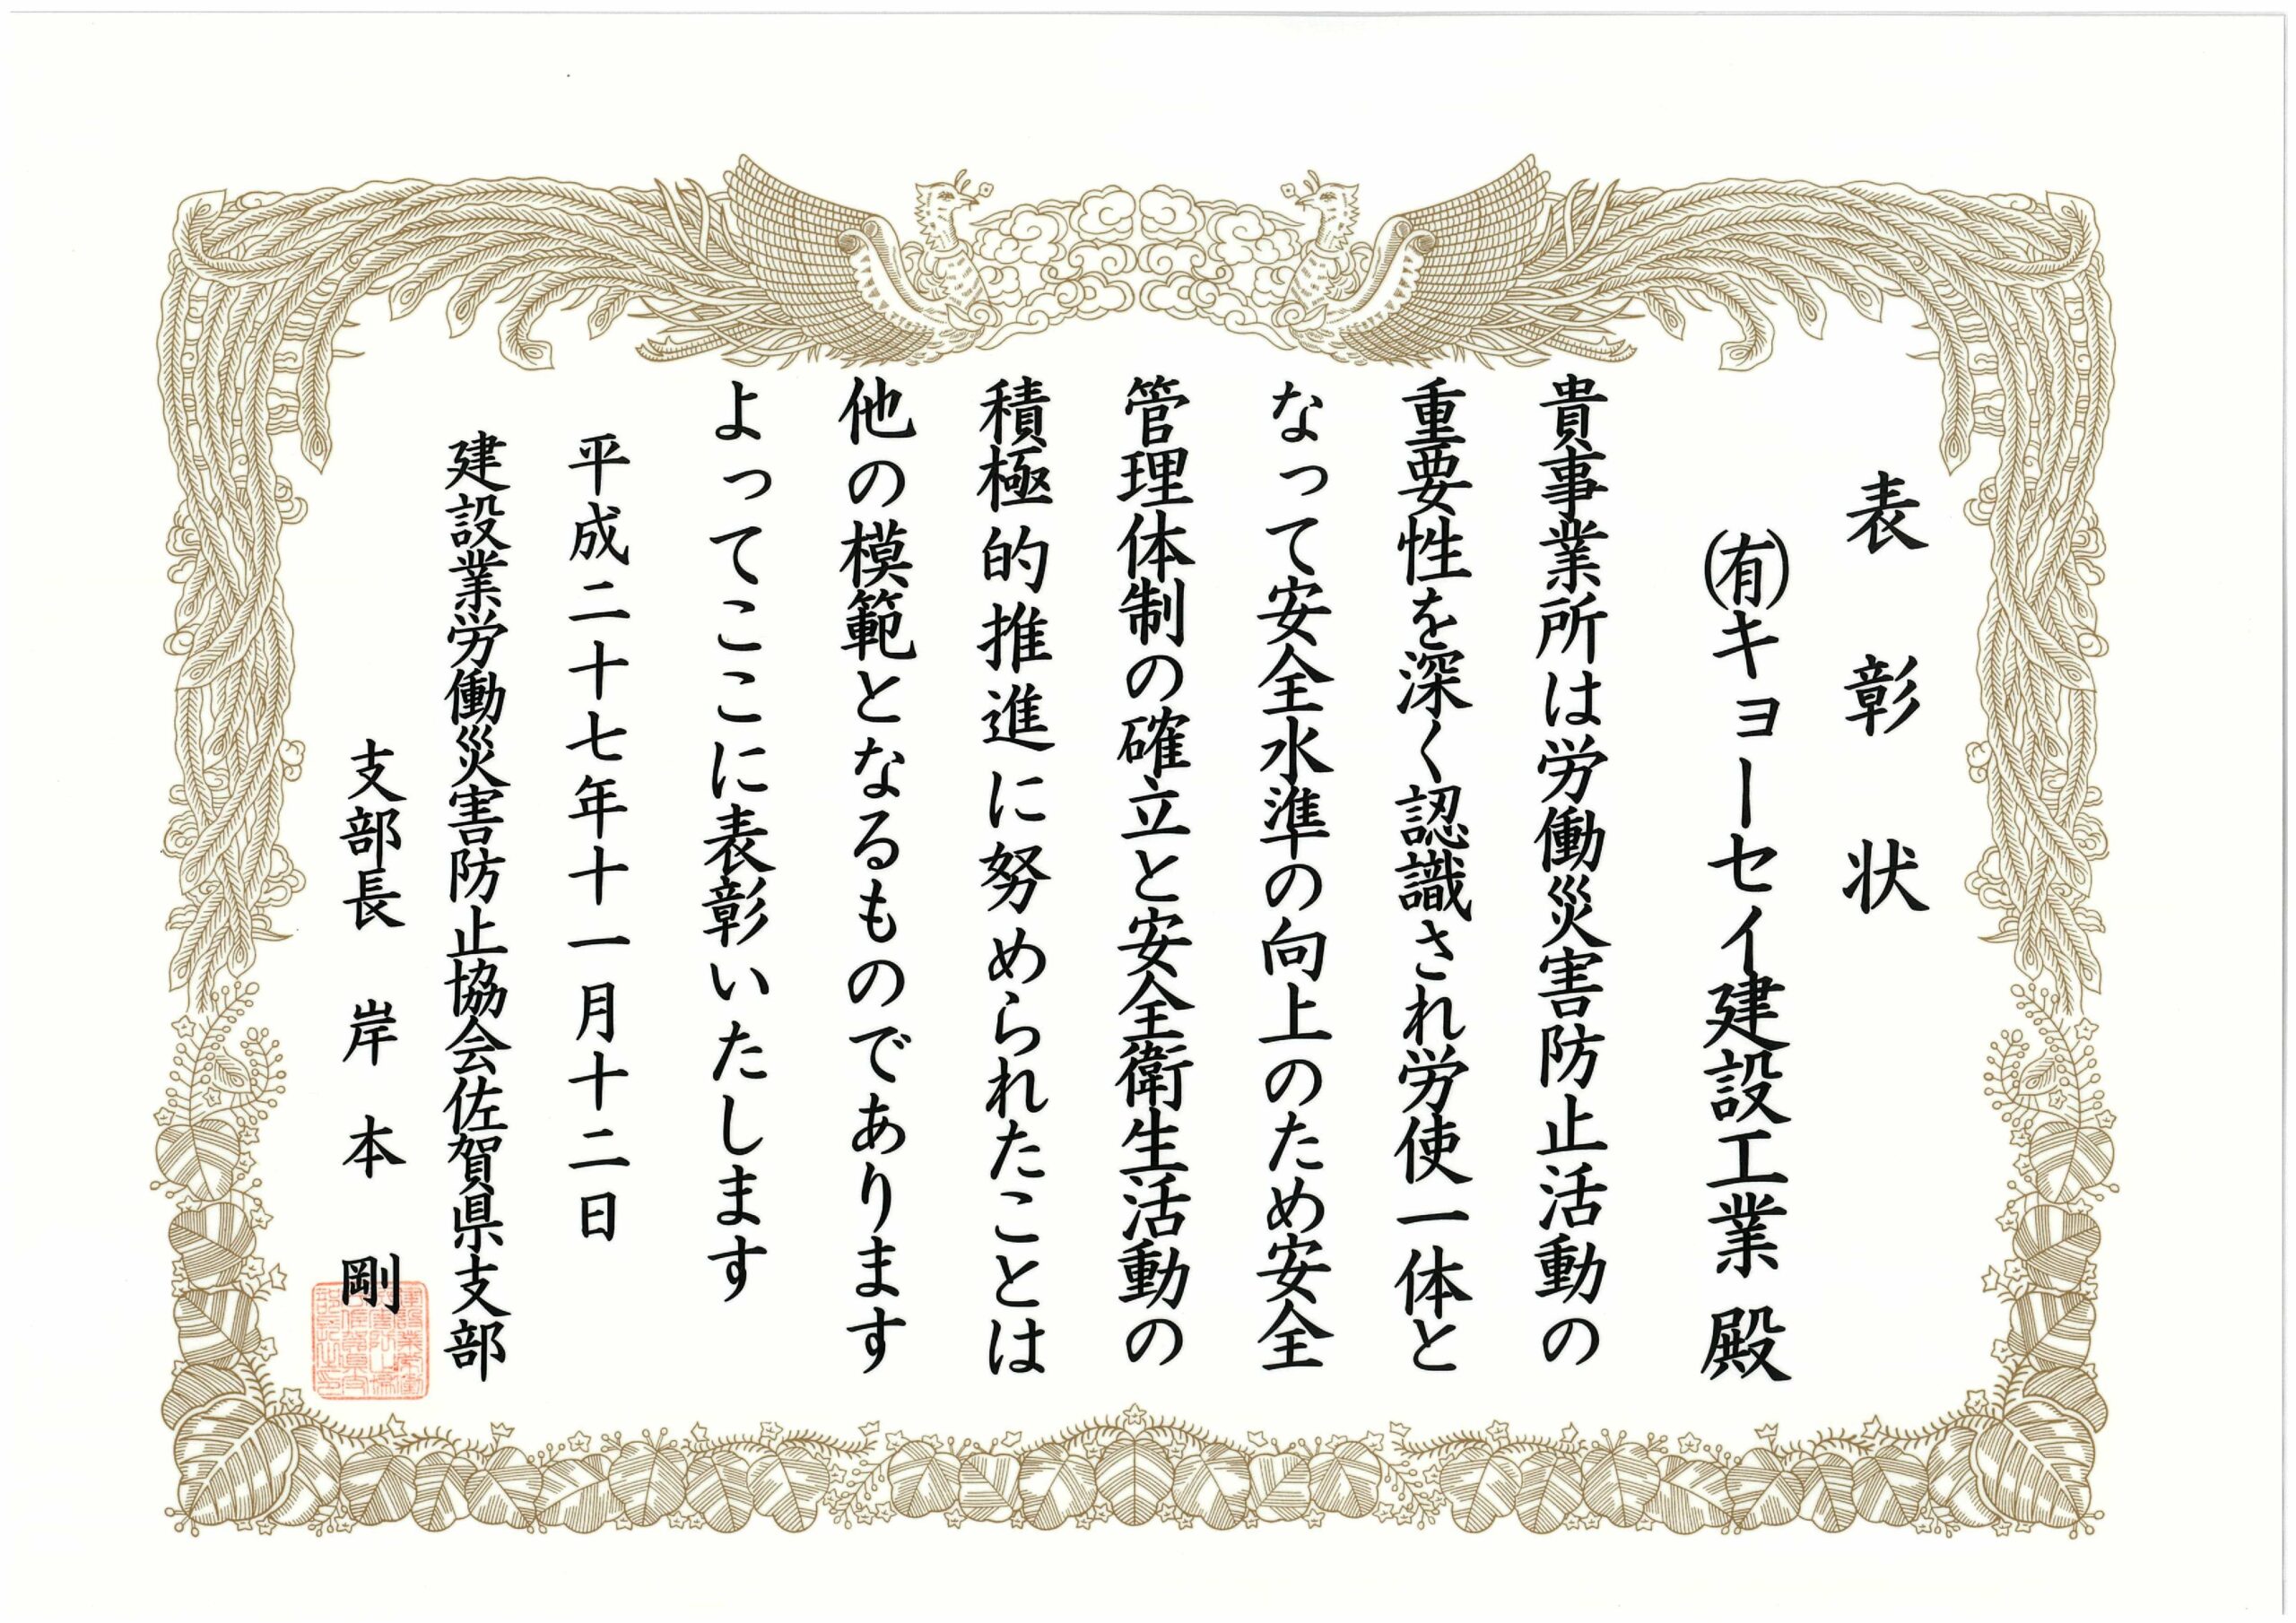 表彰状
㈲キヨーセイ建設工業 殿
貴事業所は労働災害防止活動の
重要性を深く認識され労使一体と
なって安全水準の向上のため安全
管理体制の確立と安全衛生活動の
積極的推進に努められたことは
他の模範となるものであります
よってここに表彰いたします
平成二十七年十一月十二日
建設業労働災害防止協会佐賀県支部
支部長 岸本 剛